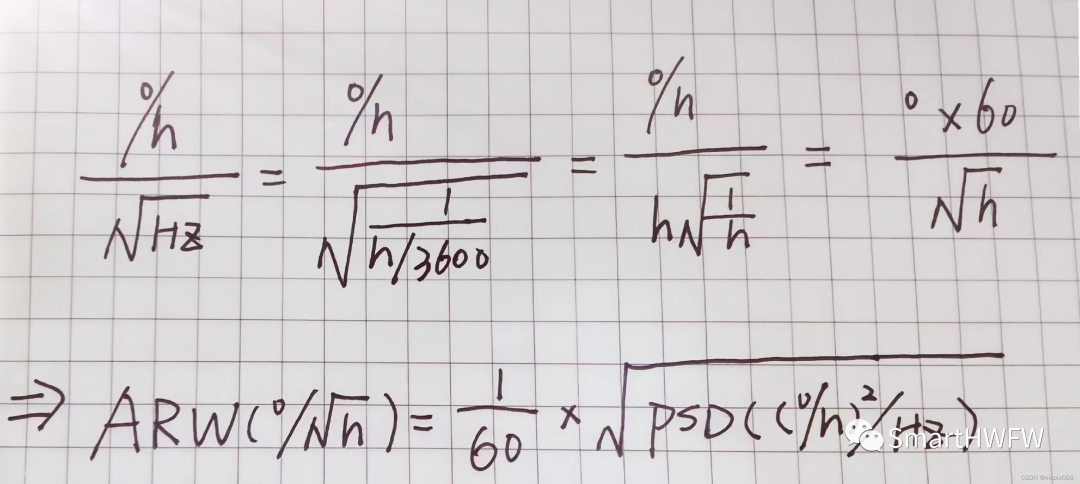 (°/h)/√HZ = (°/h)/√(1/(h/3600)) = (°/h)/(h√(1/h)) = (° × 60)/√h
⇒ ARW(°/√h) = 1/60 × √PSD((°/h)²/Hz)
SmartHWFW